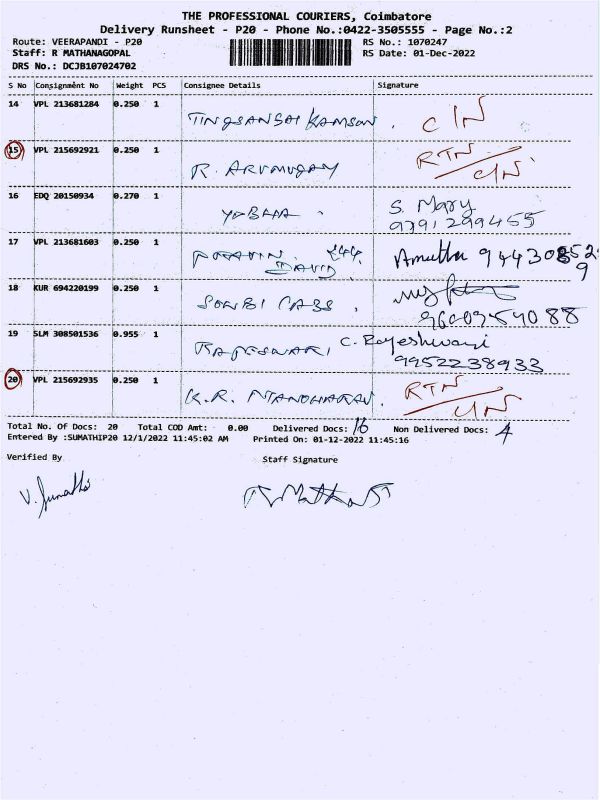 THE PROFESSIONAL COURIERS, Coimbatore
Delivery Runsheet - P20 - Phone No.:0422-3505555 - Page No.:2
Route: VEERAPANDI - P20 RS No.: 1070247
Staff: R MATHANAGOPAL RS Date: 01-Dec-2022
DRS No.: DCJB107024702
S No Consignment No Weight PCS Consignee Details Signature
14 VPL 213681284 0.250 1 TINGSANGAI KAMSON. C/N
15 VPL 215692921 0.250 1 R. ARUMUGAM RTN C/N
16 EDQ 20150934 0.270 1 S. Mary
9791299455
17 VPL 213681603 0.250 1 DAVID Amutha 9443085529
18 KUR 694220199 0.250 1
19 SLM 308501536 0.955 1 RAJESWARI C. Rajeshwari
9952238933
20 VPL 215692935 0.250 1 K.R. RTN C/N
Total No. Of Docs: 20 Total COD Amt: 0.00 Delivered Docs: 16 Non Delivered Docs: 4
Entered By :SUMATHIP20 12/1/2022 11:45:02 AM Printed On: 01-12-2022 11:45:16
Verified By Staff Signature
V. Sumathi